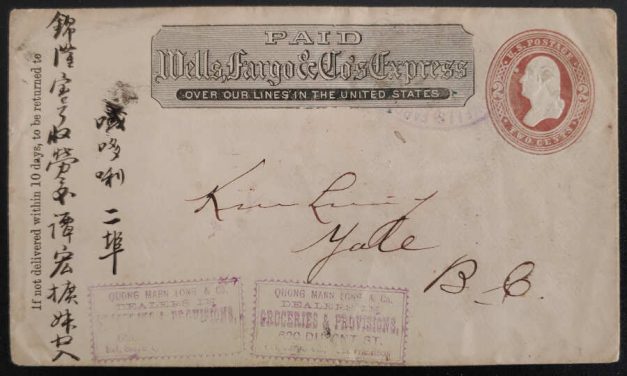 PAID
Wells, Fargo & Co's Express
OVER OUR LINES IN THE UNITED STATES
U.S. POSTAGE
TWO CENTS
2
2
If not delivered within 10 days, to be returned to
錦隆宝号收勞交譚宏擴妹收入
域多唎 二埠
Yale
B.C.
QUONG MANN LONG & Co.
DEALERS IN
GROCERIES & PROVISIONS,
QUONG MANN LONG & Co.
DEALERS IN
GROCERIES & PROVISIONS,
620 DUPONT ST.